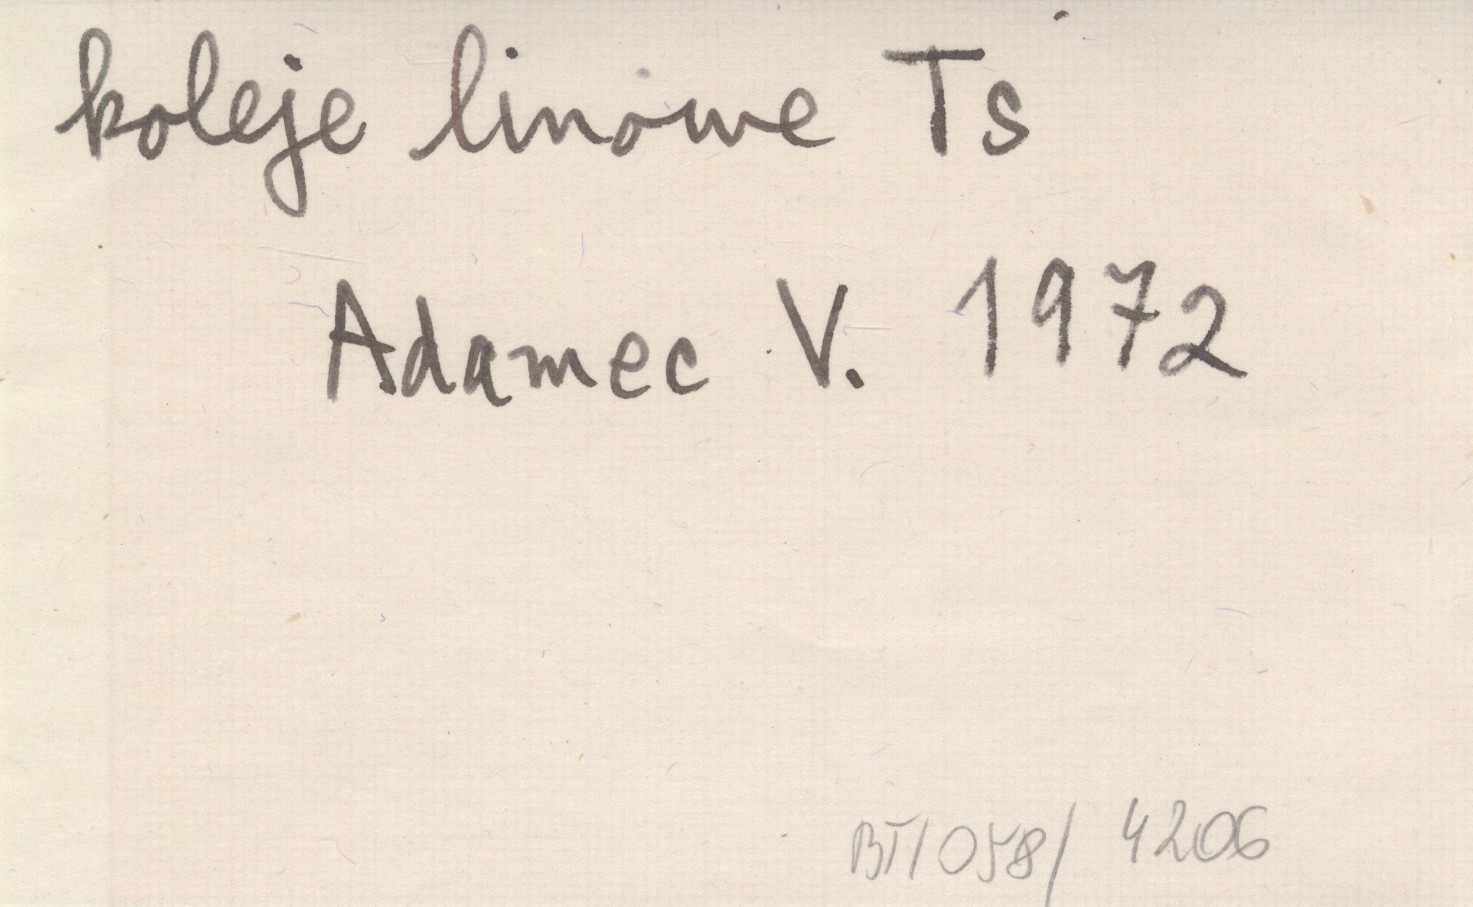 koleje linowe Ts
Adamec V. 1972
BT/058/ 4206